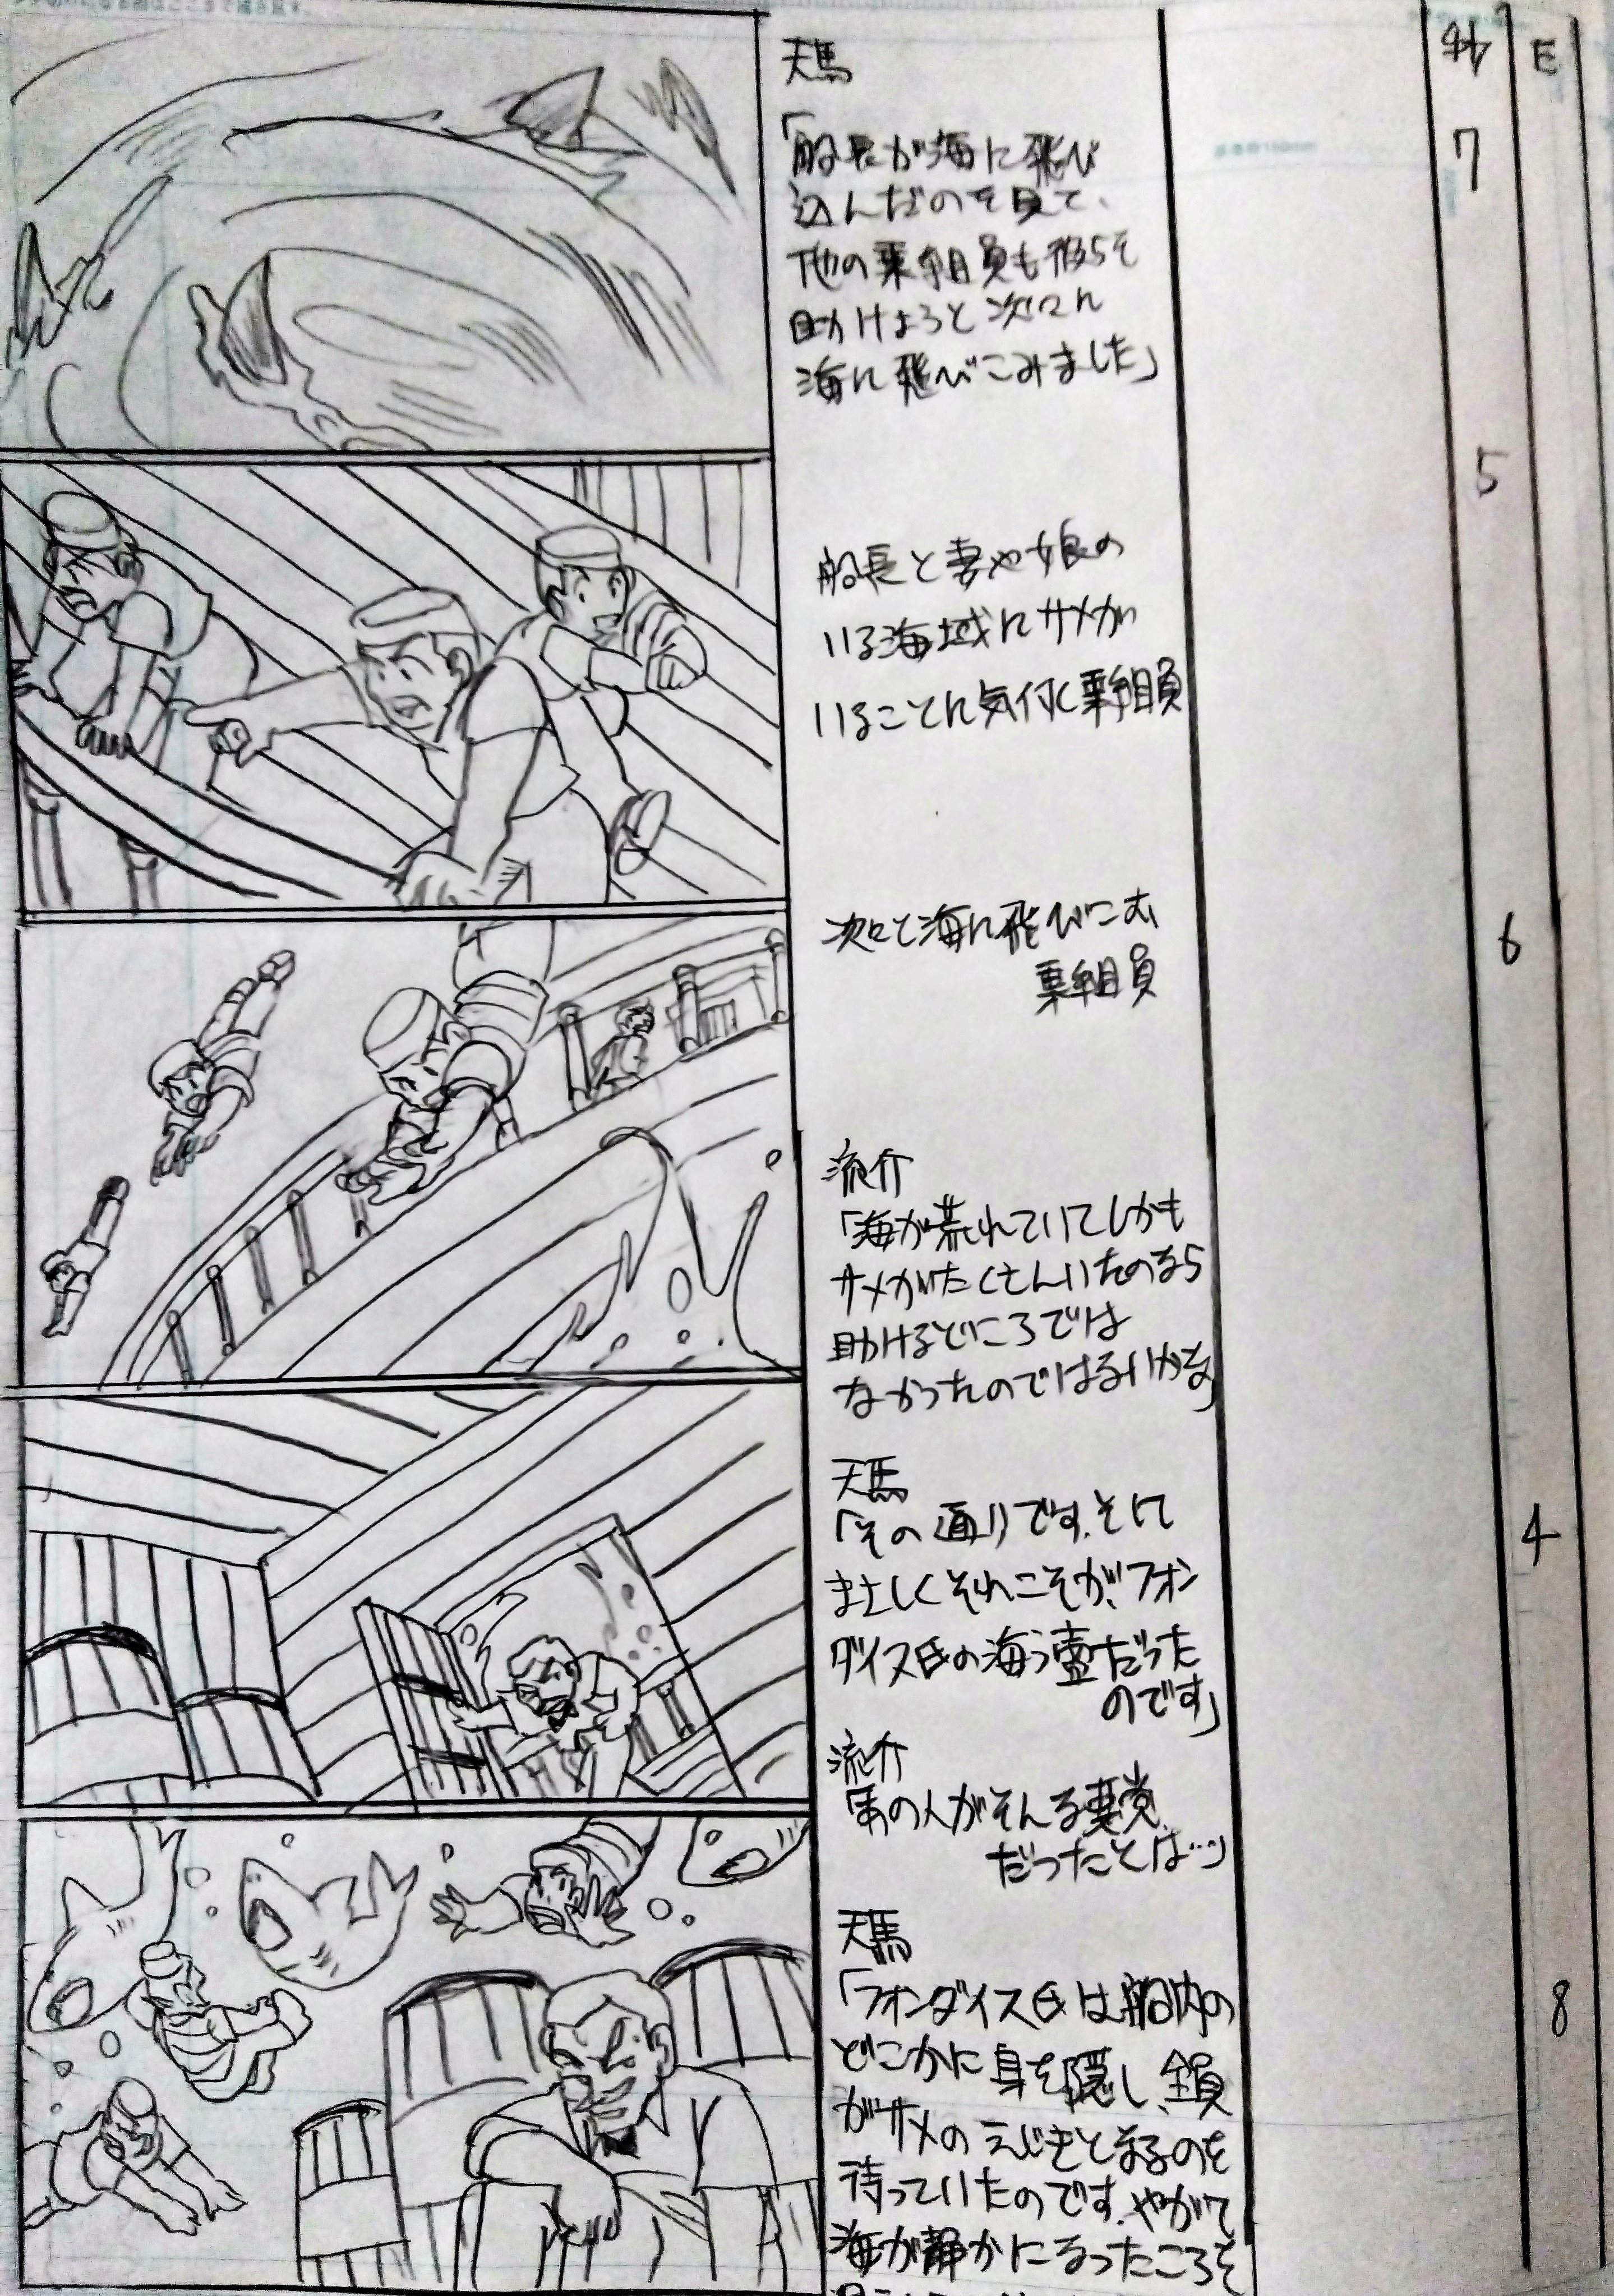 天馬
「船長が海に飛び
込んだのを見て、
他の乗組員も彼らを
助けようと次々に
海に飛びこみました」
7
5
船長と妻や娘の
いる海域にサメが
いることに気付く乗組員
次々と海に飛びこむ
乗組員
6
流介
「海が荒れていてしかも
サメがたくさんいたのなら
助けるどころでは
なかったのではないかな」
天馬
「その通りです。そして
まさしくそれこそが、フォン
ダイス氏の
だった
のです」
4
流介
「あの人がそんな悪党
だったとは…」
天馬
「フォンダイス氏は船内の
どこかに身を隠し、全員
がサメのえじきとなるのを
待っていたのです。やがて
海が静かになったころを
8